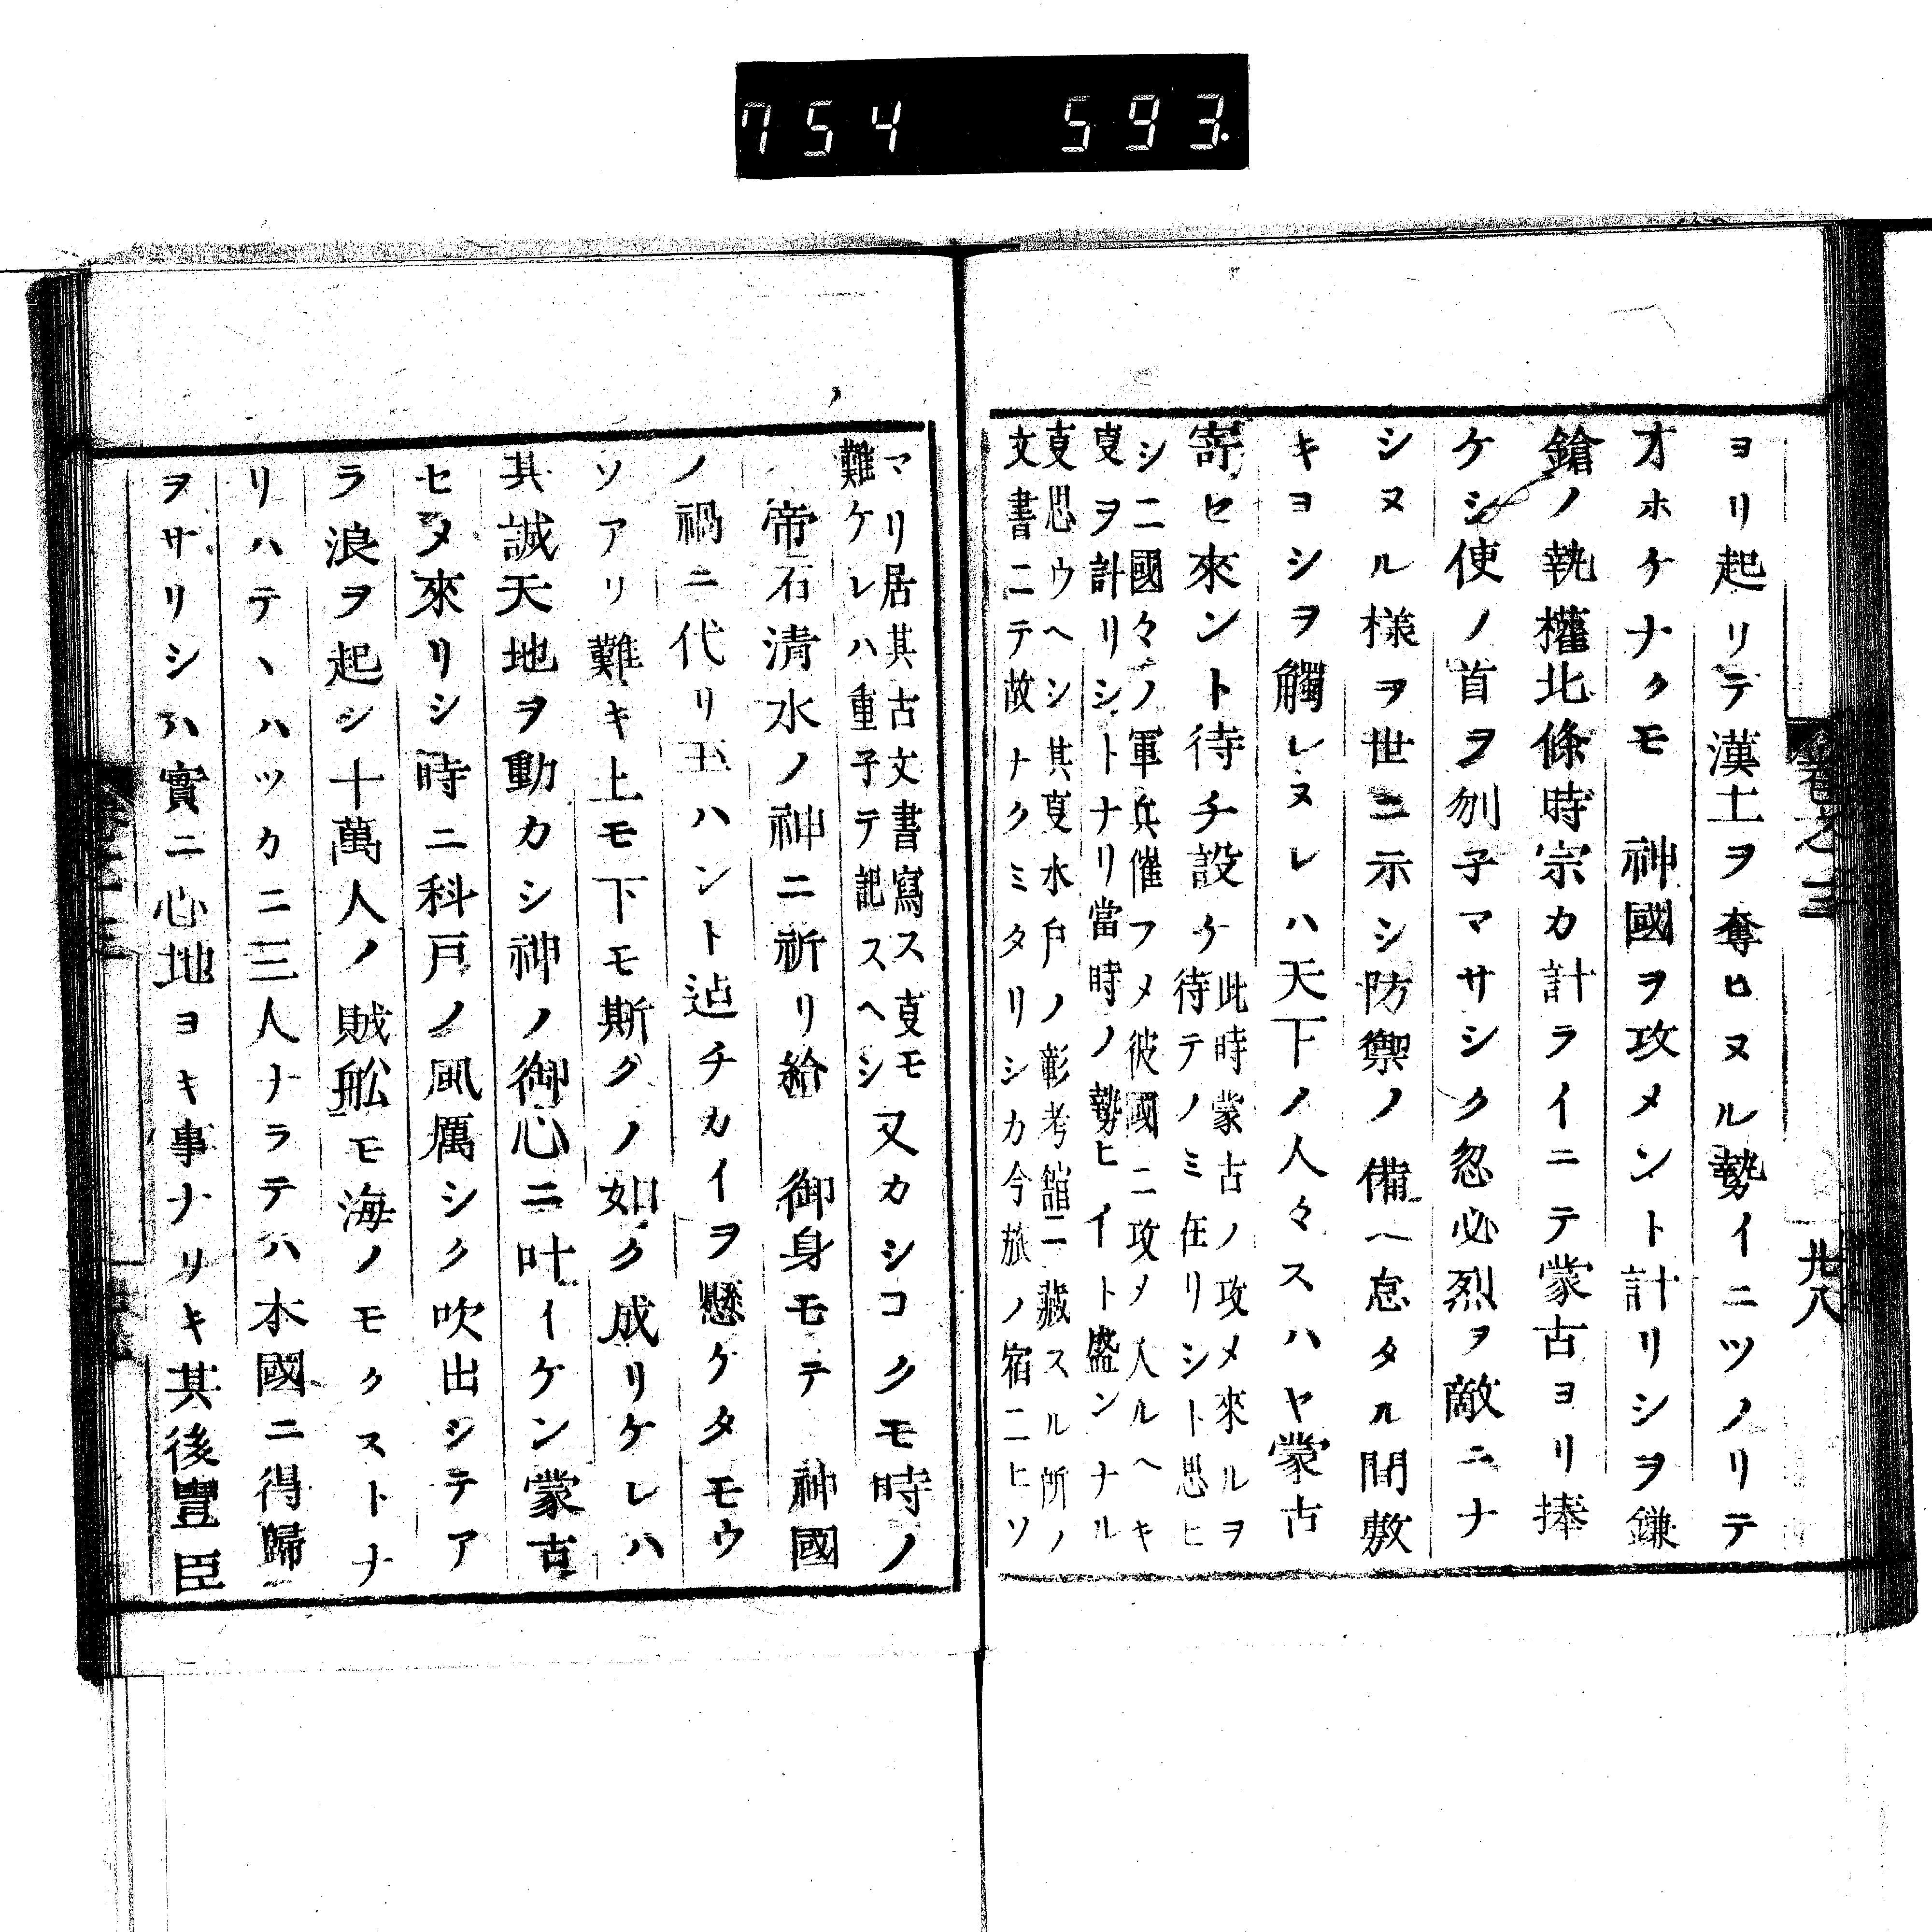 754 593.
ヨリ起リテ漢土ヲ奪ヒヌル勢イニツノリテ
オホケナクモ 神國ヲ攻メント計リシヲ鎌
鎗ノ執權北條時宗カ計ライニテ蒙古ヨリ捧
ケシ使ノ首ヲ刎子マサシク忽必烈ヲ敵ニナ
シヌル様ヲ世ニ示シ防禦ノ備ヘ怠タル間敷
キヨシヲ觸レヌレハ天下ノ人々スハヤ蒙古
寄セ來ント待チ設ケ
此時蒙古ノ攻メ來ルヲ
待テノミ在リシト思ヒ
シニ國々ノ軍兵催フメ彼國ニ攻メ入ルヘキ
叓ヲ計リシトナリ當時ノ勢ヒイト盛ンナル
叓思ウヘシ其叓水戸ノ彰考舘ニ藏スル所ノ
文書ニテ故ナクミタリシカ今旅ノ宿ニヒソ
卷之三
卅八
マリ居其古文書寫ス叓モ
難ケレハ重子テ記スヘシ
又カシコクモ時ノ
帝石清水ノ神ニ祈リ給 御身モテ 神國
ノ禍ニ代リ玉ハント迠チカイヲ懸ケタモウ
ソアリ難キ上モ下モ斯クノ如ク成リケレハ
其誠天地ヲ動カシ神ノ御心ニ叶イケン蒙古
セメ來リシ時ニ科戸ノ風厲シク吹出シテア
ラ浪ヲ起シ十萬人ノ賊舩モ海ノモクストナ
リハテヽハツカニ三人ナラテハ本國ニ得歸
ヲサリシハ實ニ心地ヨキ事ナリキ其後豐臣